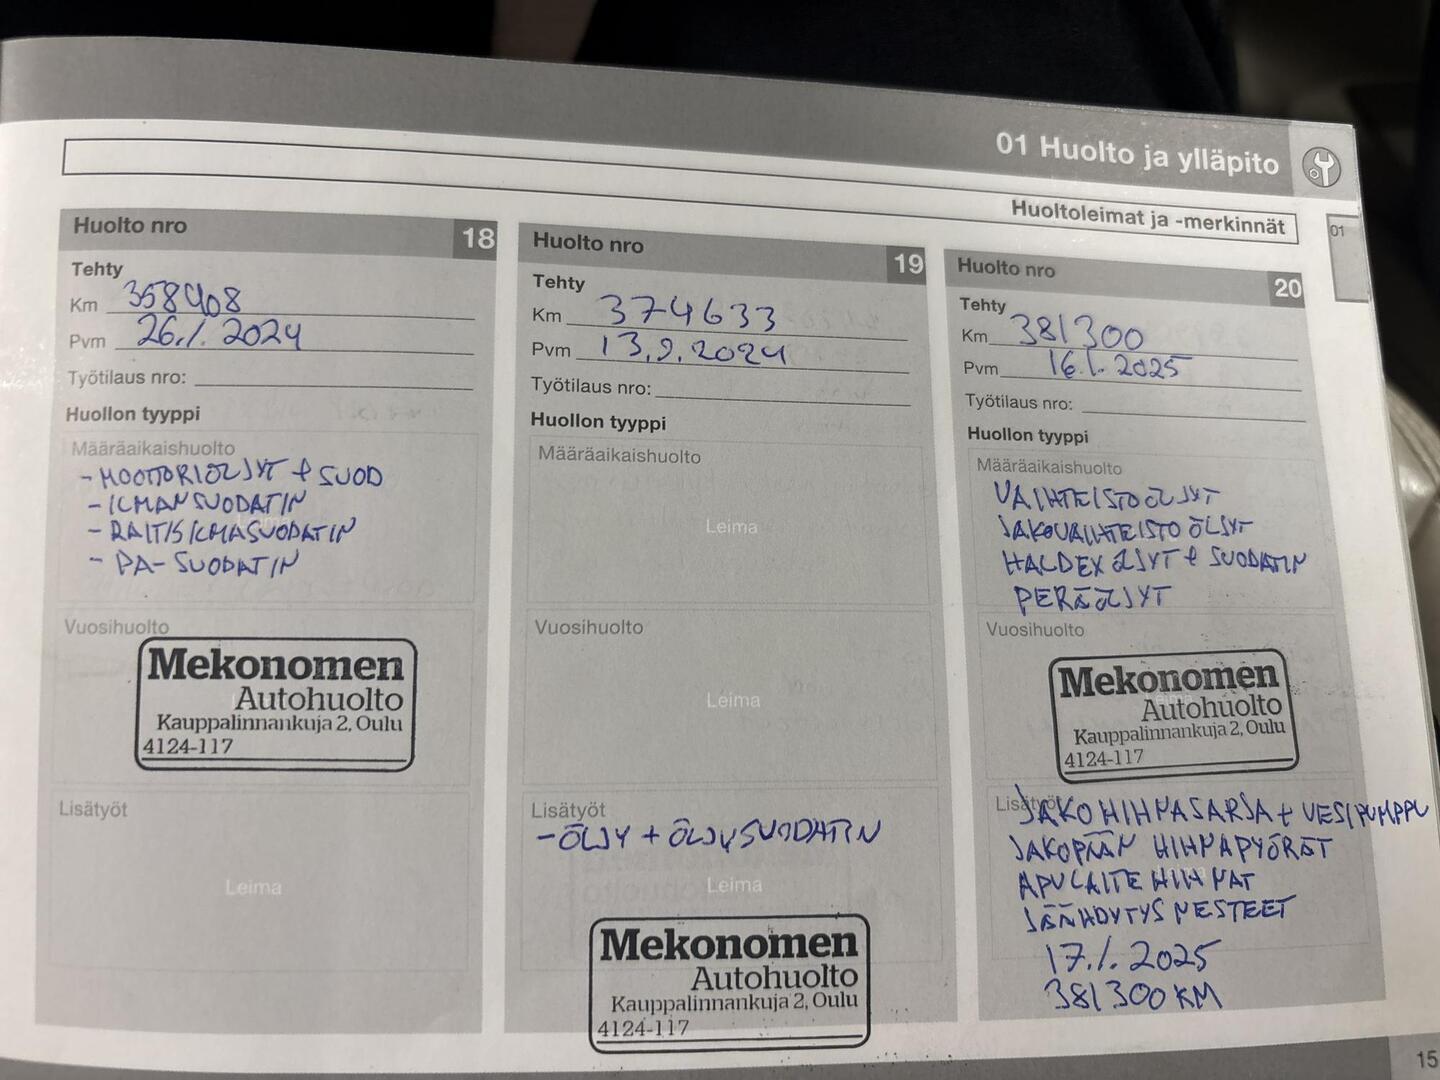 01 Huolto ja ylläpito
Huoltoleimat ja -merkinnät
01
Huolto nro 18
Tehty
Km 358408
Pvm 26.1. 2024
Työtilaus nro:
Huollon tyyppi
Määräaikaishuolto
- MOOTTORIÖLJYT + SUOD
- ILMANSUODATIN
- RAITISILMASUODATIN
- PA-SUODATIN
Vuosihuolto
Mekonomen
Autohuolto
Kauppalinnankuja 2, Oulu
4124-117
Lisätyöt
Leima
Huolto nro 19
Tehty
Km 374633
Pvm 13.9.2024
Työtilaus nro:
Huollon tyyppi
Määräaikaishuolto
Leima
Vuosihuolto
Leima
Lisätyöt
- ÖLJY + ÖLJYSUODATIN
Leima
Mekonomen
Autohuolto
Kauppalinnankuja 2, Oulu
4124-117
Huolto nro 20
Tehty
Km 381300
Pvm 16.1. 2025
Työtilaus nro:
Huollon tyyppi
Määräaikaishuolto
VAIHTEISTOÖLJYT
JAKOVAIHTEISTO ÖLJYT
HALDEX ÖLJYT + SUODATIN
PERÄÖLJYT
Vuosihuolto
Mekonomen
Autohuolto
Kauppalinnankuja 2, Oulu
4124-117
Lisätyöt
JAKOHIHNASARJA + VESIPUMPPU
JAKOPÄÄN HIHNAPYÖRÄT
APULAITEHIHNAT
JÄÄHDYTYSNESTEET
17.1. 2025
381300 KM
15